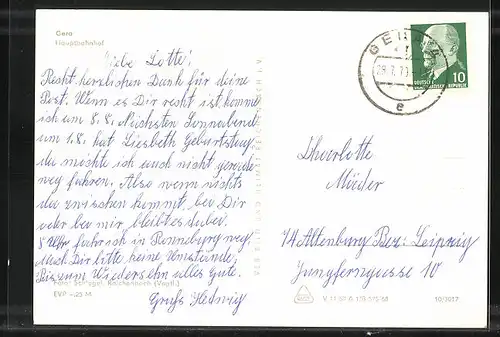 Gera
Hauptbahnhof
Liebe Lotte!
Recht herzlichen Dank für deine
Post. Wenn es Dir recht ist komme
ich am 8.8. Nächsten Sonnabend
am 1.8. hat Liesbeth Geburtstag
da möchte ich auch nicht gerade
weg fahren. Also wenn nichts
da zwischen kommt bei Dir
oder bei mir bleibt es dabei.
5 Uhr fahr ich in Ronneburg weg.
Mach Dir bitte keine Umstände,
Bis zum Wiedersehn alles Gute.
Gruß Hedwig
Reichenbach (Vogtl.)
EVP -,25 M
VEB BILD UND HEIMAT REICHENBACH I.V.
GERA
e
10
DEUTSCHE
DEMOKRATISCHE REPUBLIK
Müder
74 Altenburg Bez: Leipzig
Jungferngasse 10
10/3917